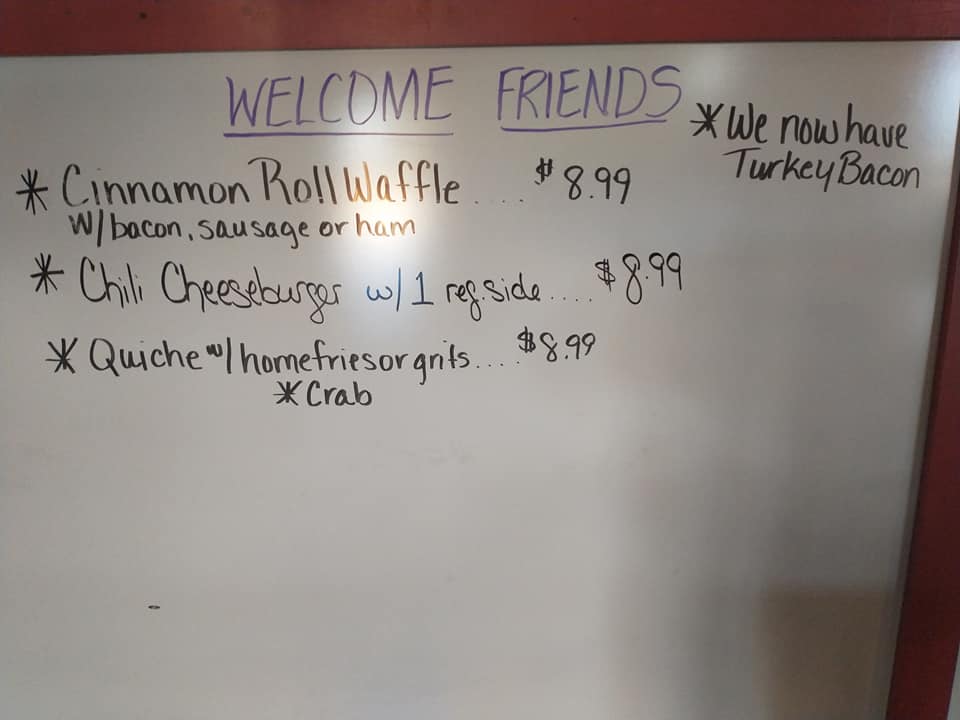 WELCOME FRIENDS
* We now have
Turkey Bacon
* Cinnamon Roll Waffle .... $8.99
W/bacon, sausage or ham
* Chili Cheeseburger w/ 1 reg. side.... $8.99
* Quiche w/ homefries or grits... $8.99
* Crab